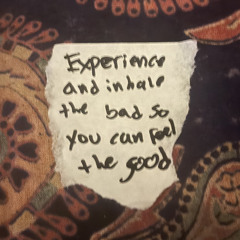 Experience
and inhale
the bad so
you can feel
the good